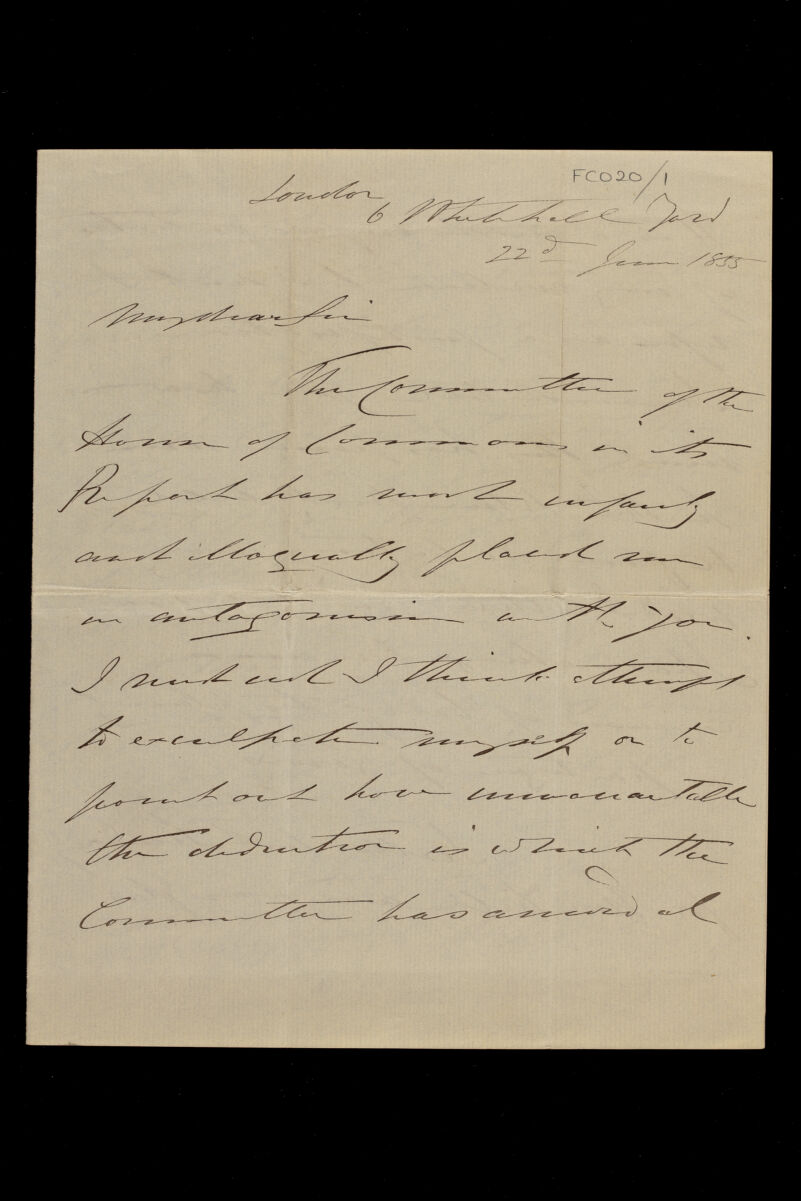 FCO20/1
London
6 Whitehall Yard
22d June 1855
My dear Sir
The Committee of the
House of Commons in its
Report has most unfairly
and illogically placed me
in antagonism with you.
I must not I think attempt
to exculpate myself or to
point out how unwarrantable
the deduction is which the
Committee has arrived at